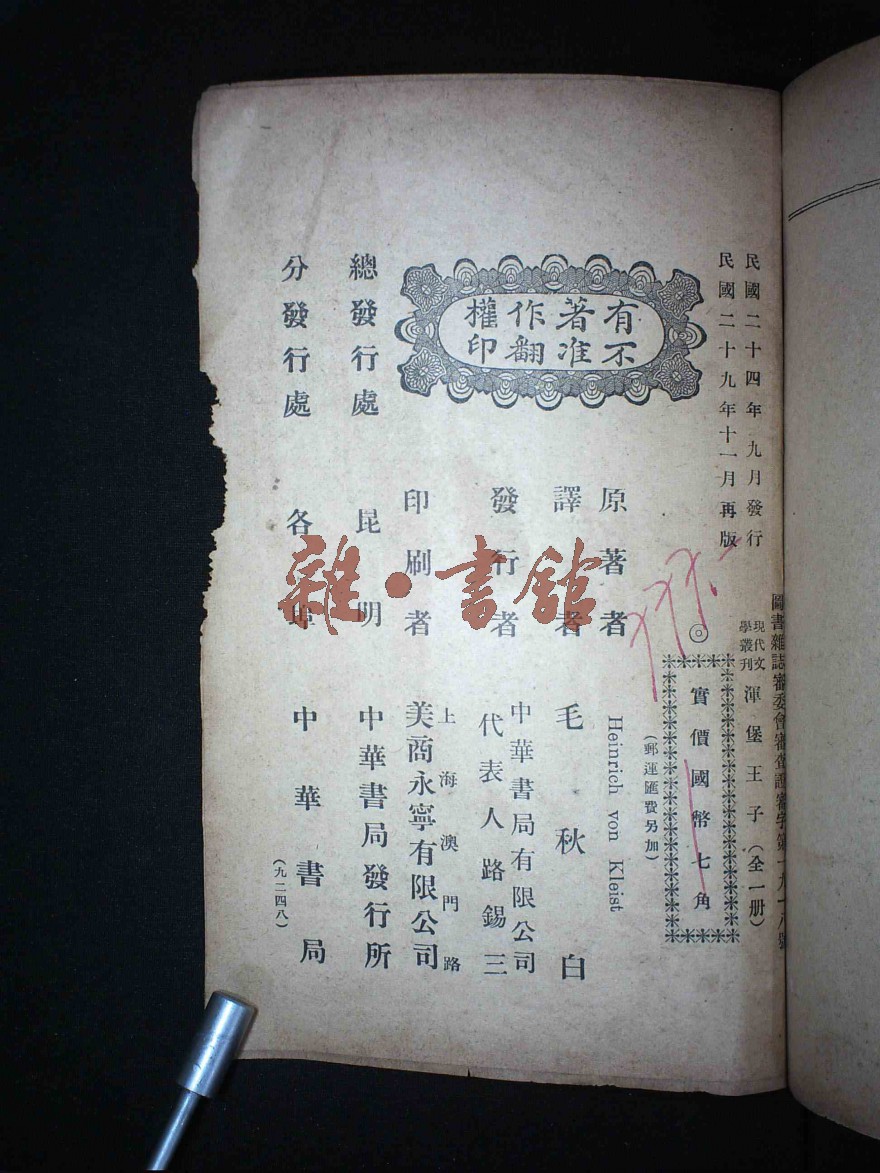 圖書雜誌審委會審查證審字第一九一八號
民國二十四年九月發行
民國二十九年十一月再版
現代文學叢刊
渾堡王子(全一册)
◎
實價國幣七角
(郵運匯費另加)
有著作權
不准翻印
原著者 Heinrich von Kleist
譯者 毛秋白
發行者 中華書局有限公司
代表人路錫三
印刷者 上海澳門路
美商永寧有限公司
總發行處 昆明 中華書局發行所
分發行處 各埠 中華書局
(九二四八)
雜·書舘